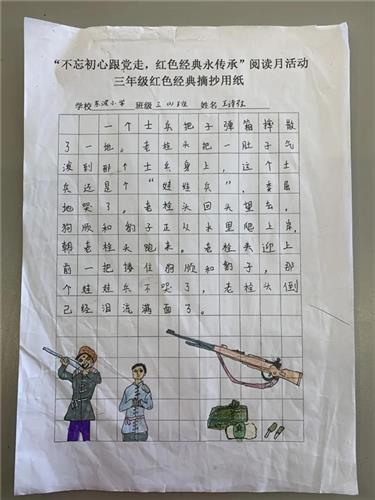 “不忘初心跟党走，红色经典永传承”阅读月活动
三年级红色经典摘抄用纸
学校 东波小学 班级 三(4)班 姓名
一个士兵把子弹箱摔散
了一地。老栓头把一肚子气
泼到那个士兵身上，这个士
兵还是个“娃娃兵”，委屈
地哭了。老栓头回头望去，
狗顺和豹子正从水里爬上岸，
朝老栓头跑来。老栓头迎上
前一把搂住狗顺和豹子，那
个娃娃兵不哭了，老栓头倒
己经泪流满面了。